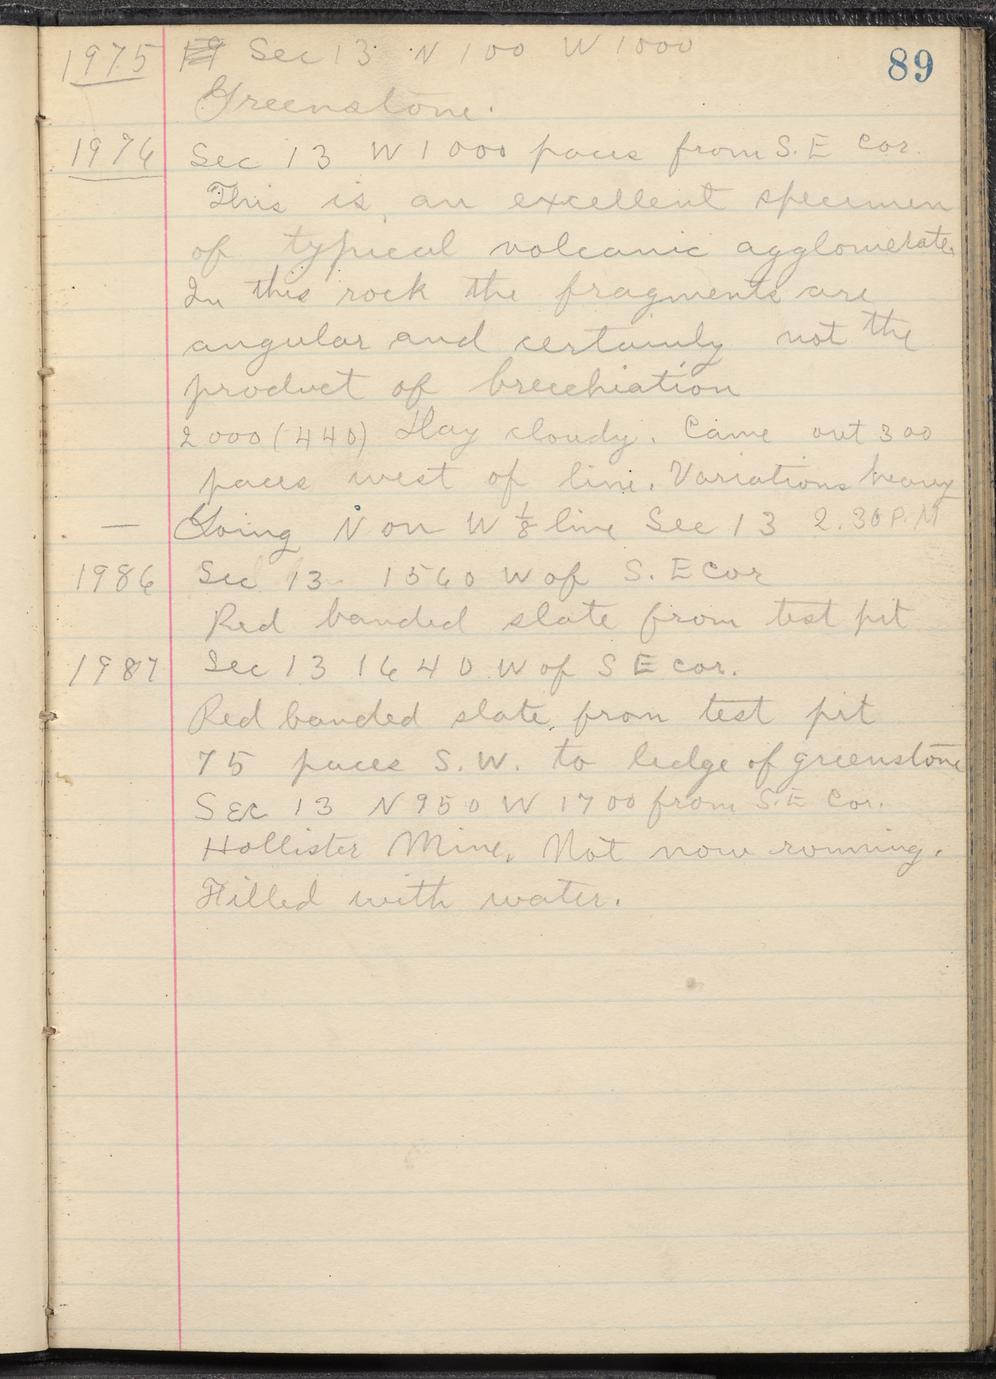 89
1975 19 Sec 13 N 100 W 1000
Greenstone.
1976 Sec 13 W 1000 paces from S.E Cor.
This is an excellent specimen
of typical volcanic agglomerate.
In this rock the fragments are
angular and certainly not the
product of brecchiation
2000 (440) Day cloudy. Came out 300
paces west of line. Variations heavy
— Going N on W 1/8 line Sec 13 2.30 P.M
1986 Sec 13 1560 W of S. E cor
Red banded slate from test pit
1987 Sec 13 1640 W of S E cor.
Red banded slate from test pit
75 paces S.W. to ledge of greenstone
Sec 13 N 950 W 1700 from S.E Cor.
Hollister Mine. Not now running.
Filled with water.